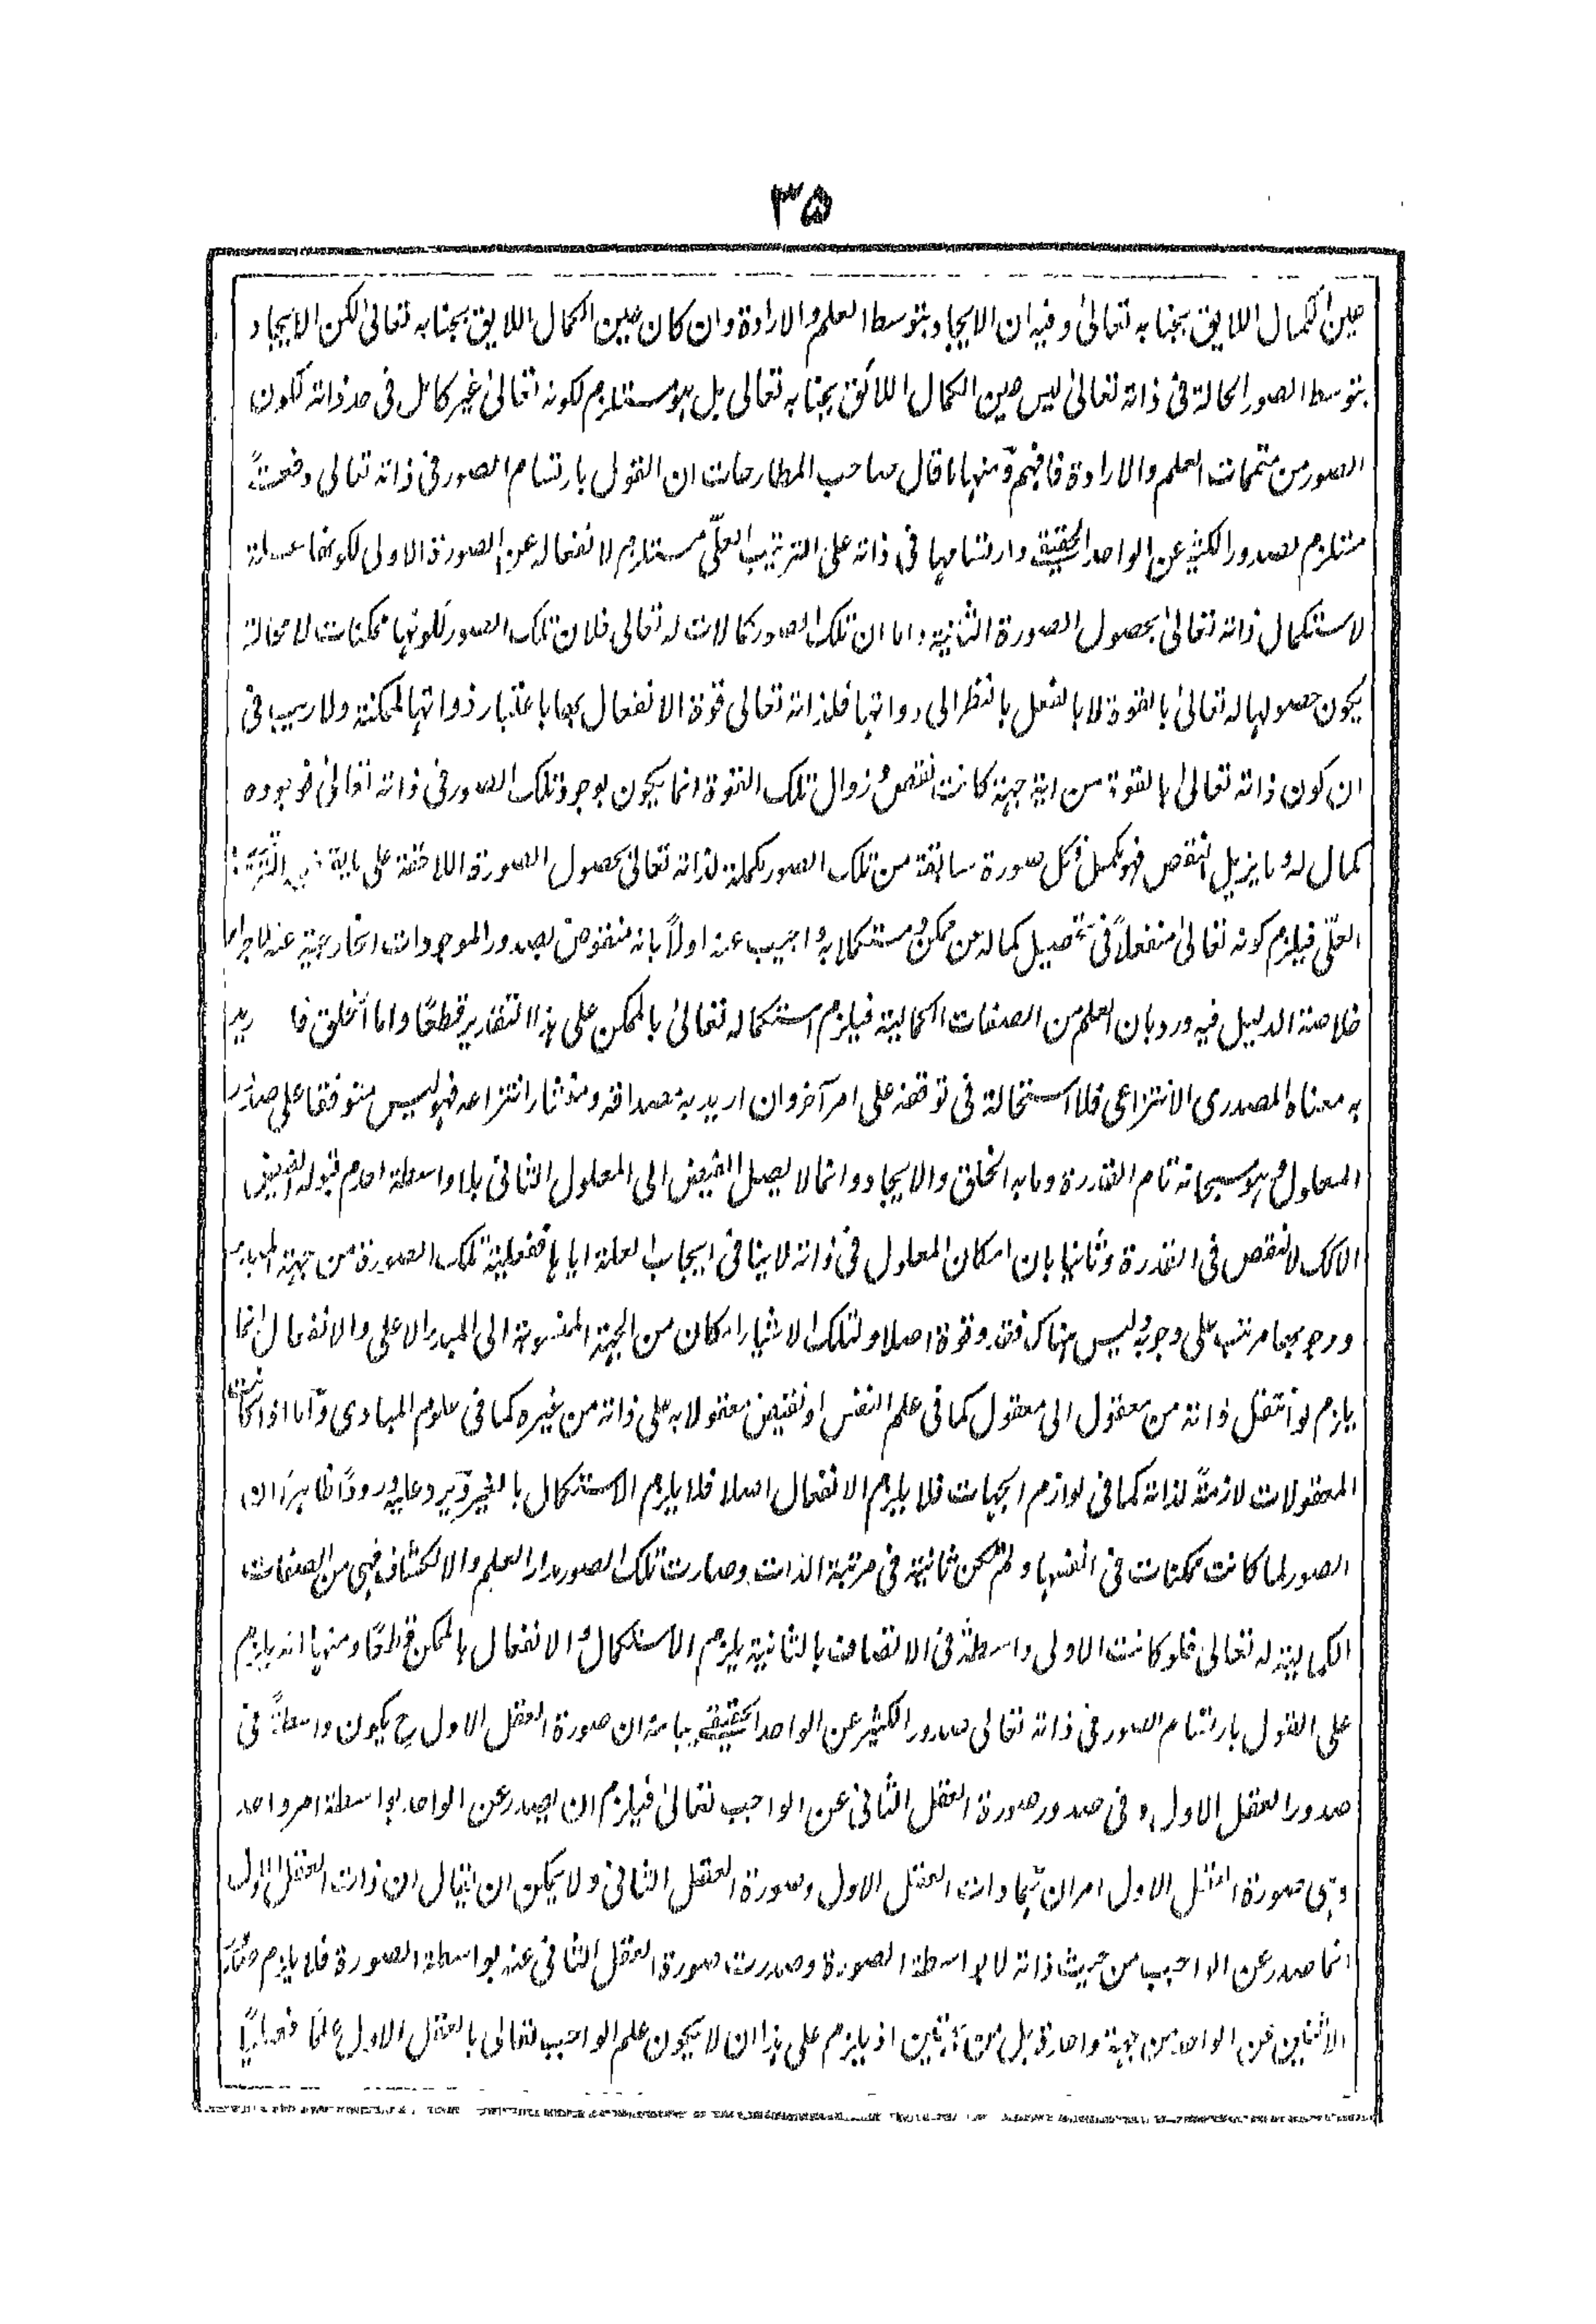 ۳۵
عين الكمال اللايق بجنابه تعالىٰ وفيه ان الايجاد بتوسط العلم والارادة وان كان عين الكمال اللايق بجنابه تعالى لكن الايجاد
بتوسط الصور الحالة فى ذاته تعالىٰ ليس عين الكمال اللائق بجنابه تعالى بل هو مستلزم لكونه تعالىٰ غير كامل فى حد ذاته لكون
الصور من متممات العلم والارادة فافهم ومنها ما قال صاحب المطارحات ان القول بارتسام الصور فى ذاته تعالى دفعةً
مستلزم لصدور الكثير عن الواحد الحقيقى وارتسامها فى ذاته على الترتيب العلّى مستلزم لانفعاله عن الصورة الاولى لكونها علة
لاستكمال ذاته تعالىٰ بحصول الصورة الثانية واما ان تلك الصور كمالات له تعالى فلان تلك الصور لكونها ممكنات لا محالة
يكون حصولها له تعالىٰ بالقوة لا بالفعل بالنظر الى ذواتها فلذاته تعالى قوة الانفعال بها باعتبار ذواتها الممكنة ولا ريب فى
ان كون ذاته تعالىٰ بالقوة من اية جهة كانت نقص وزوال تلك القوة انما يكون بوجود تلك الصور فى ذاته تعالىٰ فوجوده
كمال له وما يزيل النقص فهو مكمل فكل صورة سابقة من تلك الصور مكملة لذاته تعالىٰ بحصول الصورة اللاحقة على
العلّى فيلزم كونه تعالىٰ منفعلاً فى تحصيل كماله عن ممكن ومستكملا به واجيب عنه اولاً بانه منقوض بصدور الموجودات الخارجية عنه لاجراء
خلاصة الدليل فيه ورد بان العلم من الصفات الكمالية فيلزم استكماله تعالىٰ بالممكن على هذا التقدير قطعًا واما الخلق فا ريد
به معناه المصدرى الانتزاعى فلا استحالة فى توقفه على امر آخر وان اريد به مصداقه ومنشأ انتزاعه فهو ليس متوقفا على صدور
المعلول وهو سبحانه تام القدرة وما به الخلق والايجاد وانما لا يصل الفيض الى المعلول الثانى بلا واسطة لعدم قبوله الفيض
الا كك لا لنقص فى القدرة وثانيا بان امكان المعلول فى ذاته لا ينافى ايجاب العلة اياها ففعلية تلك الصورة من جهة المبدء
ووجوبها مرتب على وجوبه وليس هناك فقد وقوة اصلا ولتلك الاشياء امكان من الجهة المنسوبة الى المبدء الاعلى والانفعال انما
يلزم لو انتقل ذاته من معقول الى معقول كما فى علم النفس او تفيض معقولا به على ذاته من غيره كما فى علوم المبادى واما اذا كانت
المعقولات لازمةً لذاته كما فى لوازم الجهات فلا يلزم الانفعال اصلا فلا يلزم الاستكمال بالغير ويرد عليه ورودًا ظاهرًا ان
الصور لما كانت ممكنات فى انفسها ولم تكن ثابتة فى مرتبة الذات وصارت تلك الصور مدار العلم والانكشاف فهى من الصفات
الكمالية له تعالىٰ فلو كانت الاولى واسطةً فى الاتصاف بالثانية يلزم الاستكمال والانفعال بالممكن قطعًا ومنها انه يلزم
على القول بارتسام الصور فى ذاته تعالى صدور الكثير عن الواحد الحقيقى بيانه ان صورة العقل الاول ح يكون واسطةً فى
صدور العقل الاول وفى صدور صورة العقل الثانى عن الواجب تعالىٰ فيلزم ان يصدر عن الواحد بواسطة امر واحد
وهى صورة العقل الاول امران هما ذات العقل الاول وصورة العقل الثانى ولا يمكن ان يقال ان ذات العقل الاول
انما صدر عن الواجب من حيث ذاته لا بواسطة الصورة وصدرت صورة العقل الثانى عنه بواسطة الصورة فلا يلزم صدور
الاثنين عن الواحد من جهة واحدة بل من جهتين اذ يلزم على هذا ان لا يكون علم الواجب تعالى بالعقل الاول علمًا فعليًا